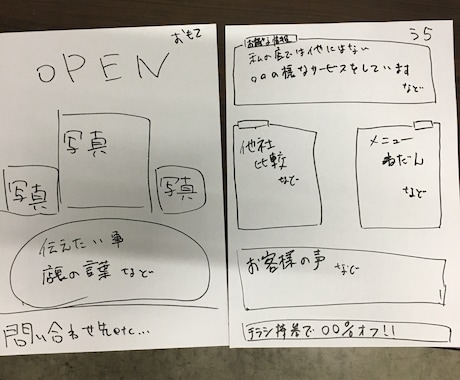 おもて
OPEN
写真
写真
写真
伝えたい事
店の言葉 など
問い合わせ先etc...
うら
お得な情報
私の店では他にはない
○○の様なサービスをしています
など
他社
比較
など
メニュー
ねだん
など
お客様の声
など
チラシ持参で〇〇%オフ!!